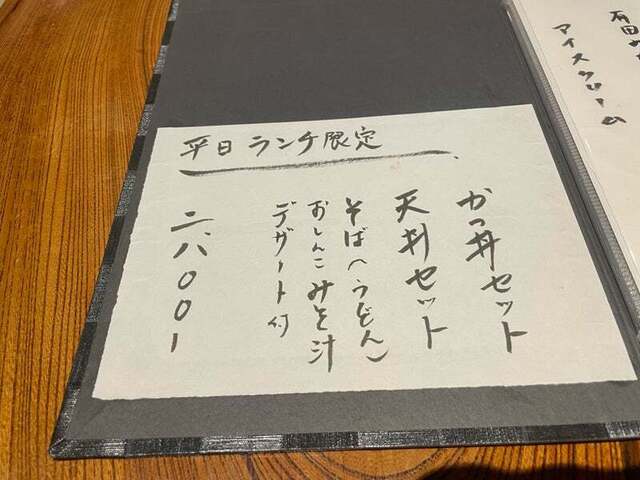 平日ランチ限定
かつ丼セット
天丼セット
そば(うどん)
おしんこみそ汁
デザート付
二、八〇〇ー
アイスクリーム